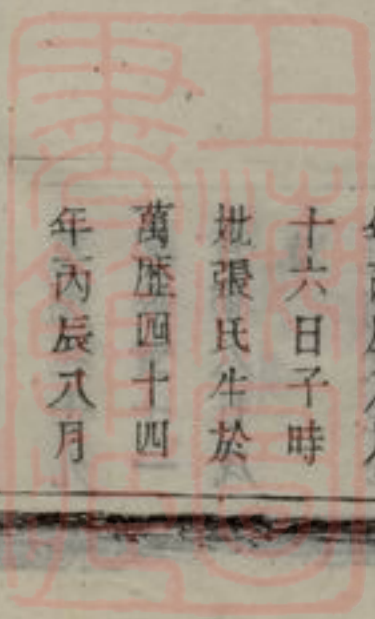 十六日子時
妣張氏生於
萬歷四十四
年丙辰八月